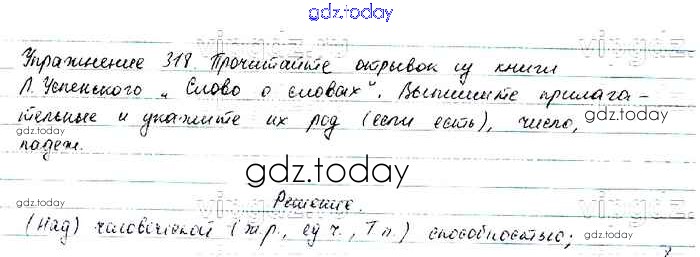 gdz.today
Упражнение 318. Прочитайте отрывок из книги
Л. Успенского „Слово о словах". Выпишите прилага-
gdz.today
тельные и укажите их род (если есть), число,
gdz.today
падеж.
gdz.today
Решение.
gdz.today
(Над) человеческой (ж.р., ед.ч., Т.п.) способностью;